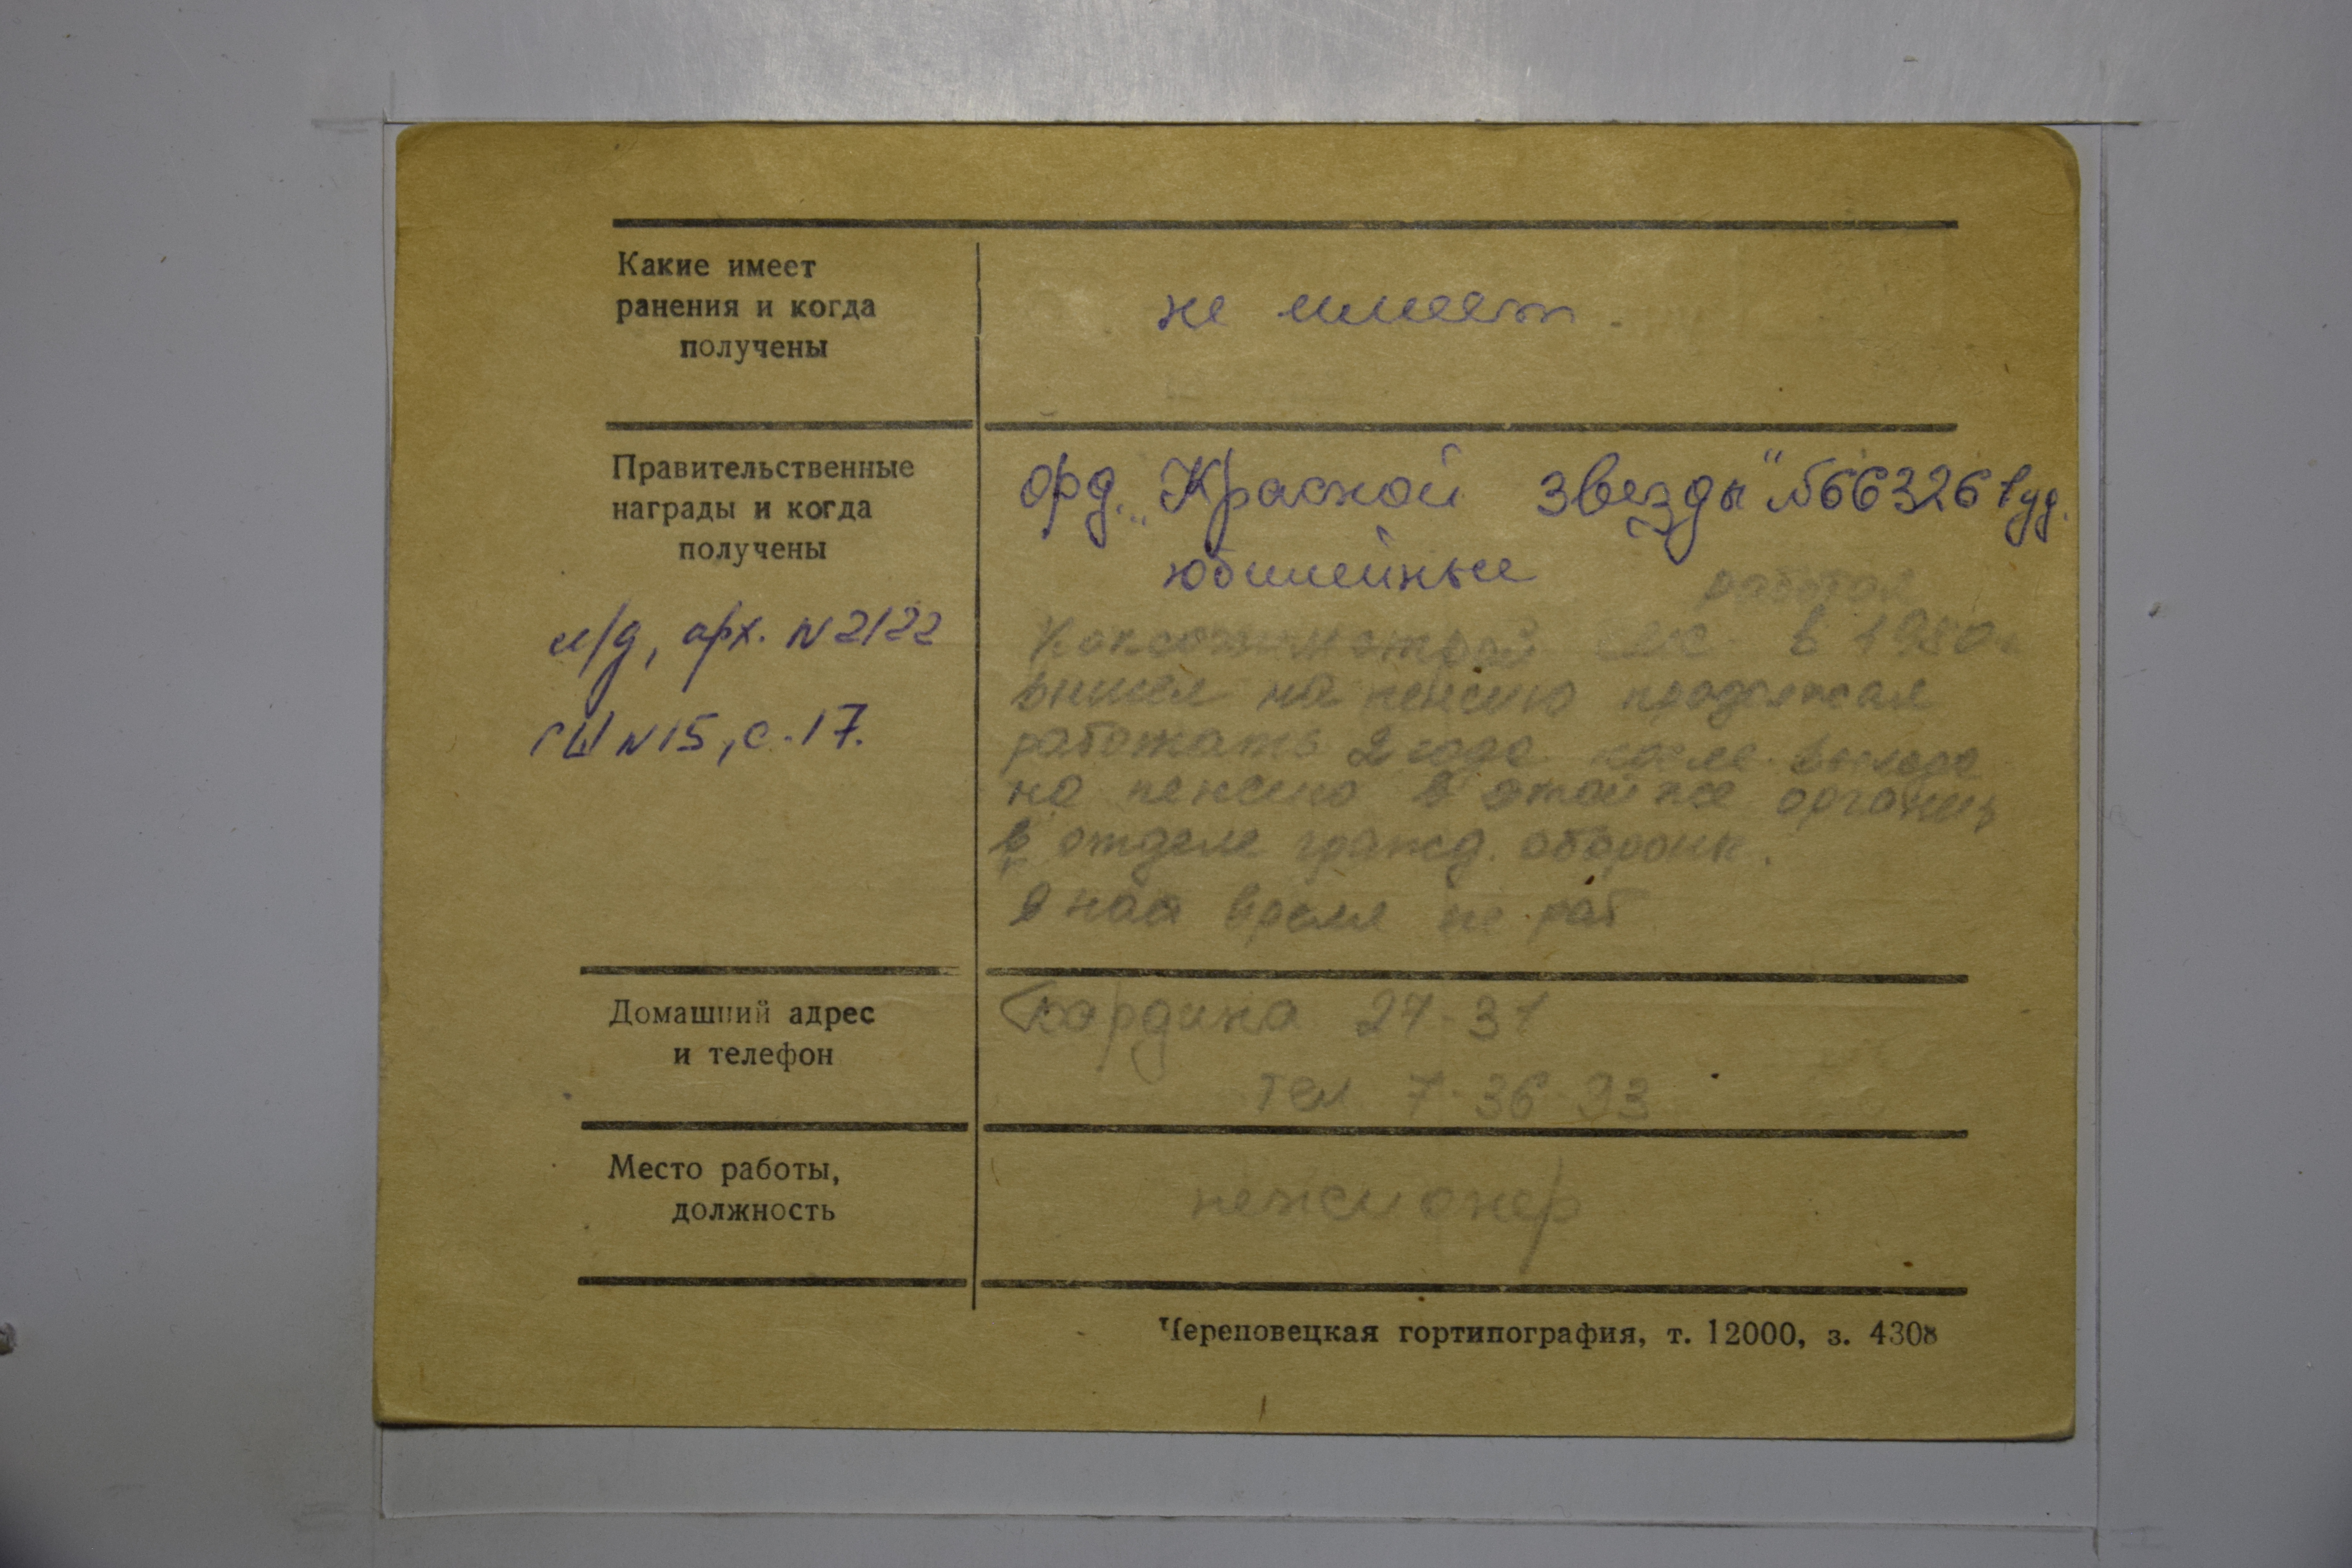 Какие имеет
ранения и когда
получены
не имеет.
Правительственные
награды и когда
получены
орд. „Красной звезды" №66326 1 уд.
юбилейные
л/д, арх. N 2122
СШ N 15, с. 17.
работал
в 1980г
вышел на пенсию продолжал
работать 2 года после выхода
на пенсию в этой же организ
в отделе гражд. оборонн.
В нас время не раб
Домашний адрес
и телефон
Бардина 24-31
тел 7-36-93
Место работы,
должность
пенсионер
Череповецкая гортипография, т. 12000, з. 4308